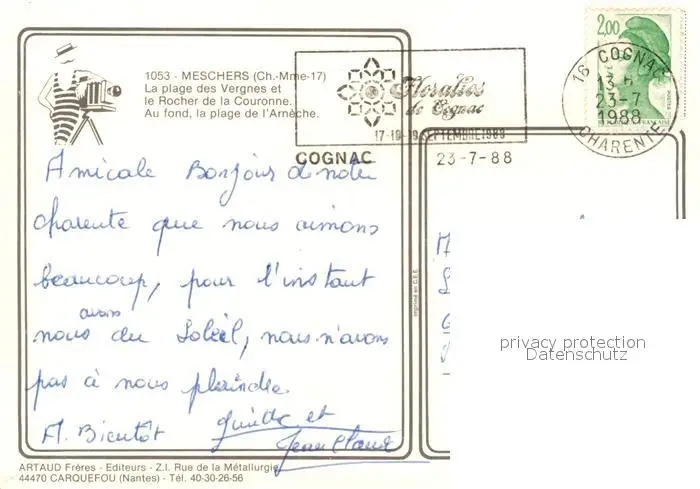 1053 - MESCHERS (Ch.-Mme-17)
La plage des Vergnes et
le Rocher de la Couronne.
Au fond, la plage de l'Arnèche.
Floralies
de Cognac
17-18-19 SEPTEMBRE 1988
COGNAC
23-7-88
2,00
16 COGNAC
13 H
23-7
1988
CHARENTE
Amicale Bonjour de notre
charente que nous aimons
beaucoup, pour l'instant
avons
nous du Soleil, nous n'avons
pas à nous plaindre.
A. Bientôt
et
Jean Claude
Imprimé en C.E.E.
privacy protection
Datenschutz
ARTAUD Frères - Editeurs - Z.I. Rue de la Métallurgie
44470 CARQUEFOU (Nantes) - Tél. 40-30-26-56